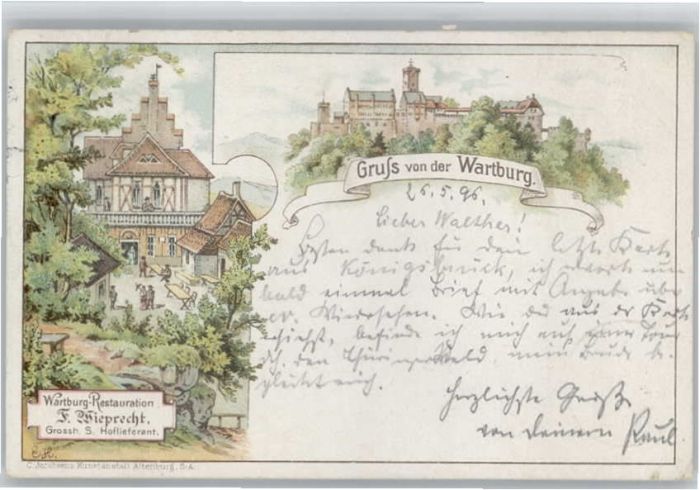 Gruſs von der Wartburg.
26.5.96.
Lieber Walther!
Besten Dank für deine letzte Karte
aus Königsbrück, ich werde nun
bald einmal Brief mit Angabe über
Wiedersehen. Wie du aus der Karte
siehst, befinde ich mich auf einer Tour
den Thüringerwald, mein Bruder
gleitet mich.
Herzlichste Grüße
von deinem Paul
Wartburg-Restauration
F. Wieprecht,
Grossh. S. Hoflieferant.
C. Jacobsens Kunstanstalt Altenburg, S-A.